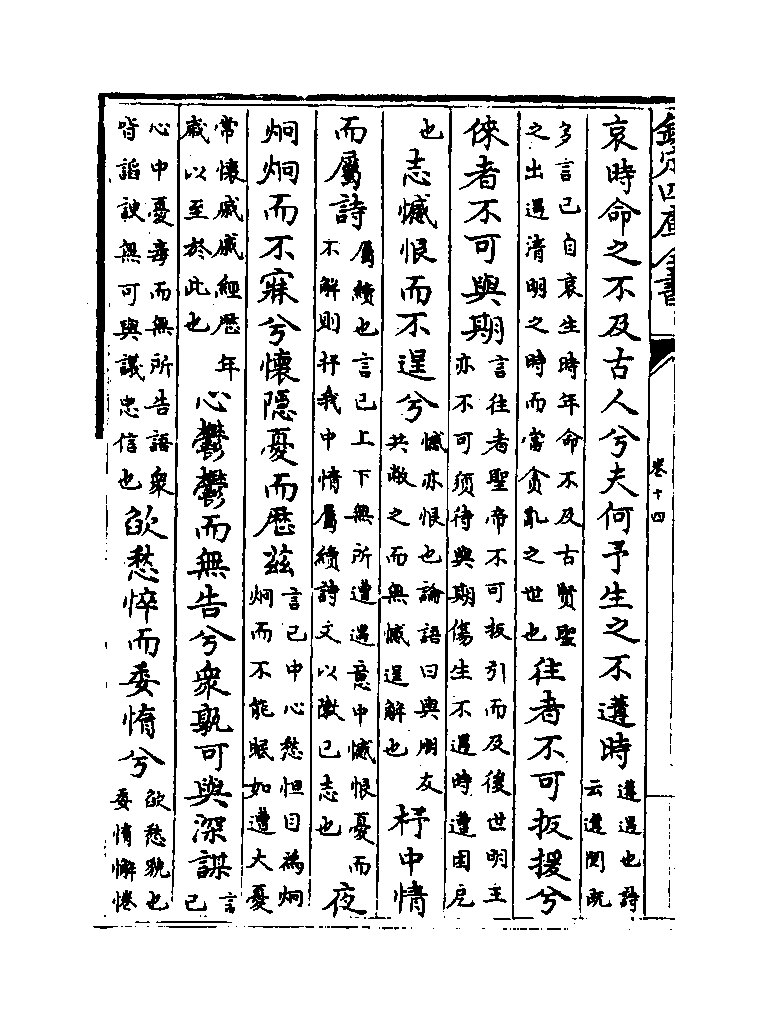 欽定四庫全書
卷十四
哀時命之不及古人兮夫何予生之不遘時遘遇也詩云遘閔既
多言己自哀生時年命不及古賢聖之出遇清明之時而當貪亂之世也往者不可扳援兮
倈者不可與期言往者聖帝不可扳引而及後世明王亦不可須待與期傷生不遇時遭困厄
也志憾恨而不逞兮憾亦恨也論語曰與朋友共敝之而無憾逞解也杼中情
而屬詩屬續也言己上下無所遭遇意中憾恨憂而不解則杼我中情屬續詩文以陳己志也夜
炯炯而不寐兮懷隱憂而歴茲言己中心愁怛目為炯炯而不能眠如遭大憂
常懷戚戚經歴年戚以至於此也心鬱鬱而無告兮衆孰可與深謀言己
心中憂毒而無所告語衆皆諂諛無可與議忠信也欿愁悴而委惰兮欿愁貌也委惰懈惓